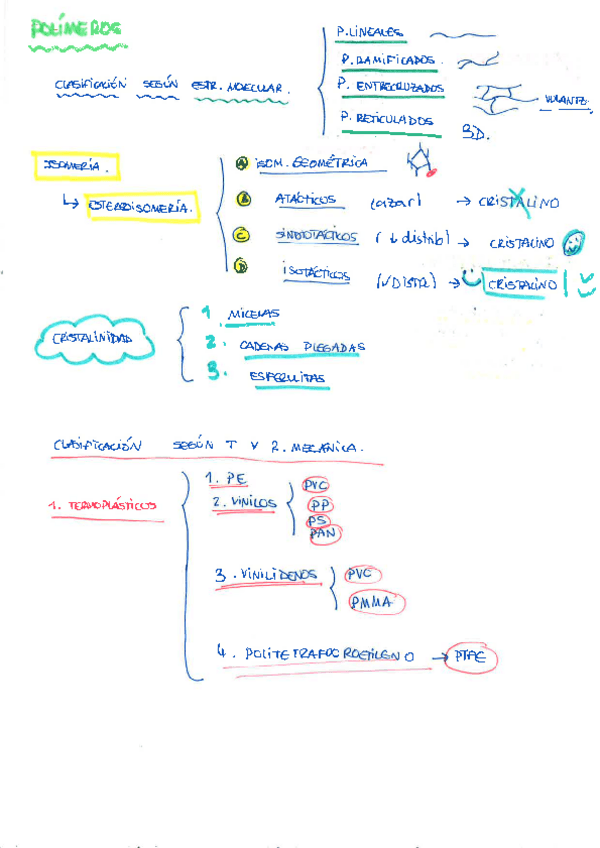 POLÍMEROS
CLASIFICACIÓN SEGÚN ESTR. MOLECULAR.
P. LINEALES
P. RAMIFICADOS.
P. ENTRECRUZADOS
P. RETICULADOS 3D.
ISOMERÍA.
↳ ESTEROISOMERÍA.
A ISOM. GEOMÉTRICA
B ATÁCTICOS (azar) → CRISTALINO
C SINDIOTÁCTICOS (↓ distrib) → CRISTALINO
D ISOTÁCTICOS (√DISTR) → CRISTALINO
CRISTALINIDAD
1. MICELAS
2. CADENAS PLEGADAS
3. ESFERULITAS
CLASIFICACIÓN SEGÚN T Y R. MECÁNICA.
1. TERMOPLÁSTICOS
1. PE
2. VINILOS
PVC
PP
PS
PAN
3. VINILIDENOS
PVC
PMMA
4. POLITETRAFLUOROETILENO → PTFE